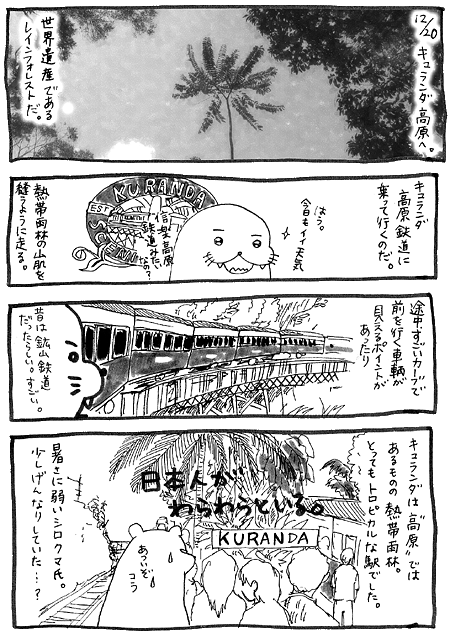 12/20
キュランダ高原へ。
世界遺産である
レインフォレストだ。
キュランダ
高原鉄道に
乗って行くのだ。
はう。
今日もイイ天気
KURANDA
EST
信楽高原
鉄道みたい
なの?
熱帯雨林の山肌を
縫うように走る。
途中すごいカーブで
前を行く車輌が
見えるポイントが
あったり
昔は鉱山鉄道
だったらしい。すごい。
キュランダは"高原"では
あるものの 熱帯雨林。
とってもトロピカルな駅でした。
日本人が
わらわらといる。
KURANDA
あついぞ
コラ
暑さに弱いシロクマ氏。
少しげんなりしていた…?